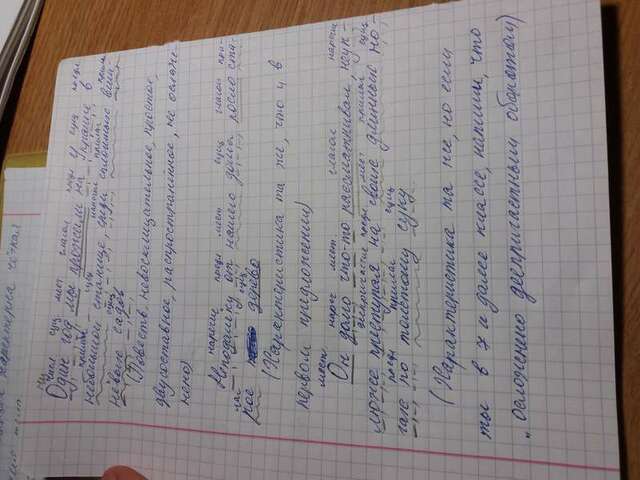 характерна чёткая
числ сущ мест глагол предл сущ предл
Один год мы прожили на Украине в
прилаг сущ прилаг
небольшой станице, среди сплошных виш-
сущ
нёвых садов
(Повеств, невосклицательное, простое,
двусоставное, распространённое, не ослож-
нено)
наречие предл мест сущ глагол при-
Неподалёку от нашего дома росло ста-
лаг сущ
рое дерево
(Характеристика та же, что и в
первом предложении)
мест нареч мест глагол наречие
Он долго что-то рассматривал, неук-
деепричастие предл мест прилаг сущ
люже преступая на своих длинных но-
предл прилаг сущ
гах по толстому суку
(Характеристика та же, но если
ты в 7 и далее классе, напиши, что
„осложнено деепричастным оборотом)